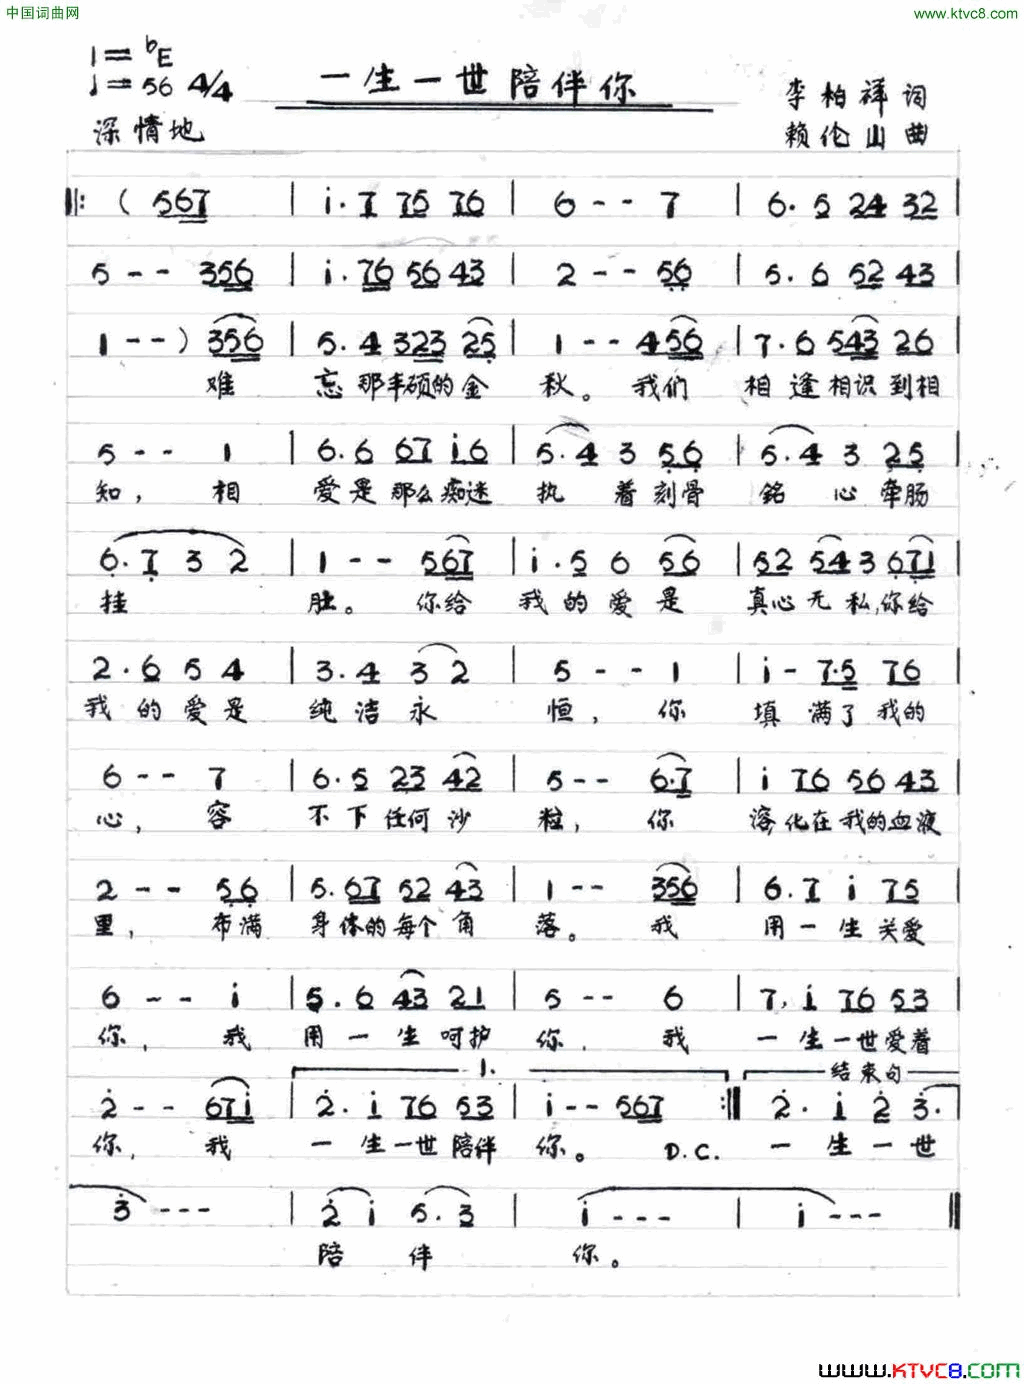 中国词曲网
www.ktvc8.com
1=♭E
♩=56 4/4
一生一世陪伴你
李柏祥词
深情地
赖伦山曲
‖: ( 567 | i.7 75 76 | 6 - - 7 | 6.5 24 32 |
5 - - 356 | i.76 56 43 | 2 - - 56 | 5.6 52 43 |
1 - - ) 356 | 5.4 323 25 | 1 - - 456 | 7.6 543 26 |
难 忘那丰硕的金 秋。我们 相逢相识到相
5 - - 1 | 6.6 67 i6 | 5.4 3 56 | 5.4 3 25 |
知，相 爱是那么痴迷 执着刻骨 铭心牵肠
6.7 3 2 | 1 - - 567 | i.5 6 56 | 52 543 671 |
挂 肚。你给 我的爱是 真心无私,你给
2.6 5 4 | 3.4 3 2 | 5 - - 1 | i - 7.5 76 |
我的爱是 纯洁永 恒，你 填满了我的
6 - - 7 | 6.5 23 42 | 5 - - 6.7 | i 76 56 43 |
心，容 不下任何沙 粒，你 溶化在我的血液
2 - - 56 | 5.67 52 43 | 1 - - 356 | 6.7 i 75 |
里，布满 身体的每个角 落。我 用一生关爱
6 - - i | 5.6 43 21 | 5 - - 6 | 7.i 76 53 |
你，我 用一生呵护 你，我 一生一世爱着
1. 结束句
2 - - 67i | 2.i 76 53 | i - - 567 :‖ 2.i 2 3. |
你，我 一生一世陪伴 你。D.C. 一生一世
3 - - - | 2 i 5.3 | i - - - | i - - - ‖
陪伴 你。
www.KTVC8.com